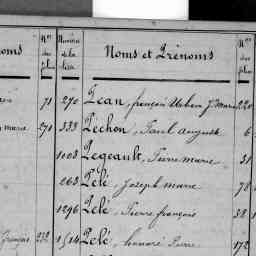 oms Nos des plis Numéros de la liste Noms et Prénoms Nos des plis
71 270 Pean, françois Urbain J. Marie 220
marie 271 333 Péchon, Paul auguste 6
1008 Pegeault, Pierre marie 31
263 Pelé, Joseph marie 78
1296 Pelé, Pierre françois 38
françois 232 1514 Pelé, honoré Pierre 172